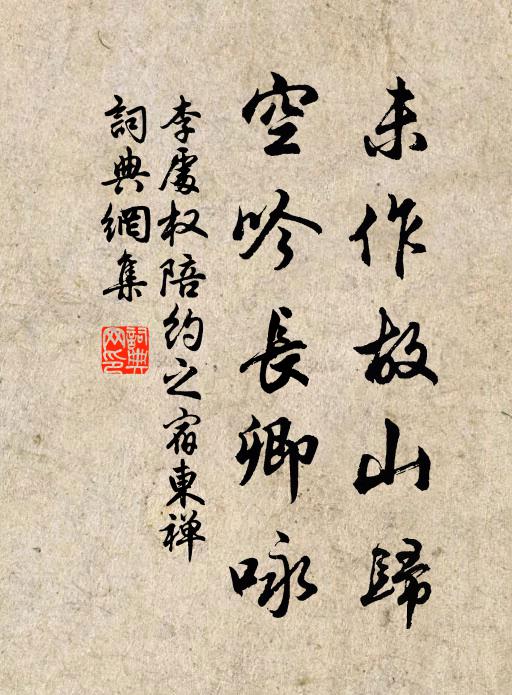 未作故山歸
空吟長卿咏
李處权陪约之宿東禅
詞典網集
詞典网印